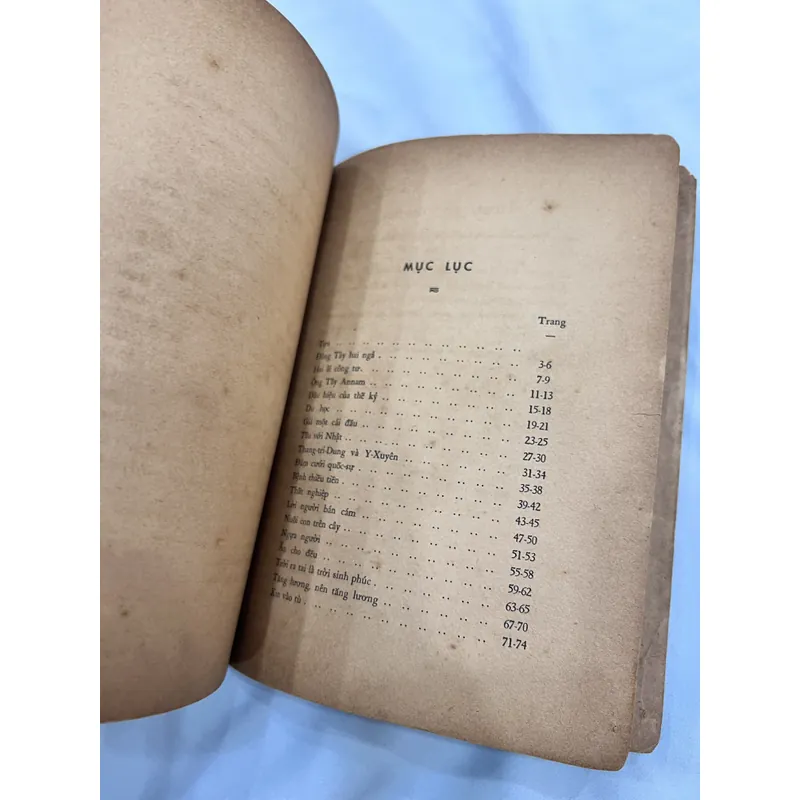 MỤC LỤC
Trang
Tựa .. .. .. .. .. .. .. .. .. ..
Đông Tây hai ngả . .. .. .. .. .. .. .. 3-6
công tư. .. .. .. .. .. .. .. 7-9
Ông Tây Annam .. .. .. .. .. .. .. 11-13
Dấu hiệu của thế kỷ .. .. .. .. .. .. 15-18
Du học .. .. .. .. .. .. .. .. .. 19-21
Giá một cái đầu . .. .. .. .. .. .. 23-25
Tàu với Nhật .. .. .. .. .. .. .. .. 27-30
Thang-trí-Dung và Y-Xuyên .. .. .. .. .. 31-34
Đám cưới quốc-sự . .. .. .. .. .. .. 35-38
Bệnh thiếu tiền .. .. .. .. .. .. .. 39-42
Thất nghiệp .. .. .. .. .. .. .. .. 43-45
Lời người bán cám .. .. .. .. .. .. .. 47-50
Nuôi con trên cây .. .. .. .. .. .. .. 51-53
Ngựa người .. .. .. .. .. .. .. .. 55-58
Ăn cho đều .. .. .. .. .. .. .. .. 59-62
Trời ra tai là trời sinh phúc . .. .. .. .. .. 63-65
Tăng lương, nên tăng lương .. .. .. .. .. 67-70
vào .. .. .. .. .. .. .. .. .. 71-74